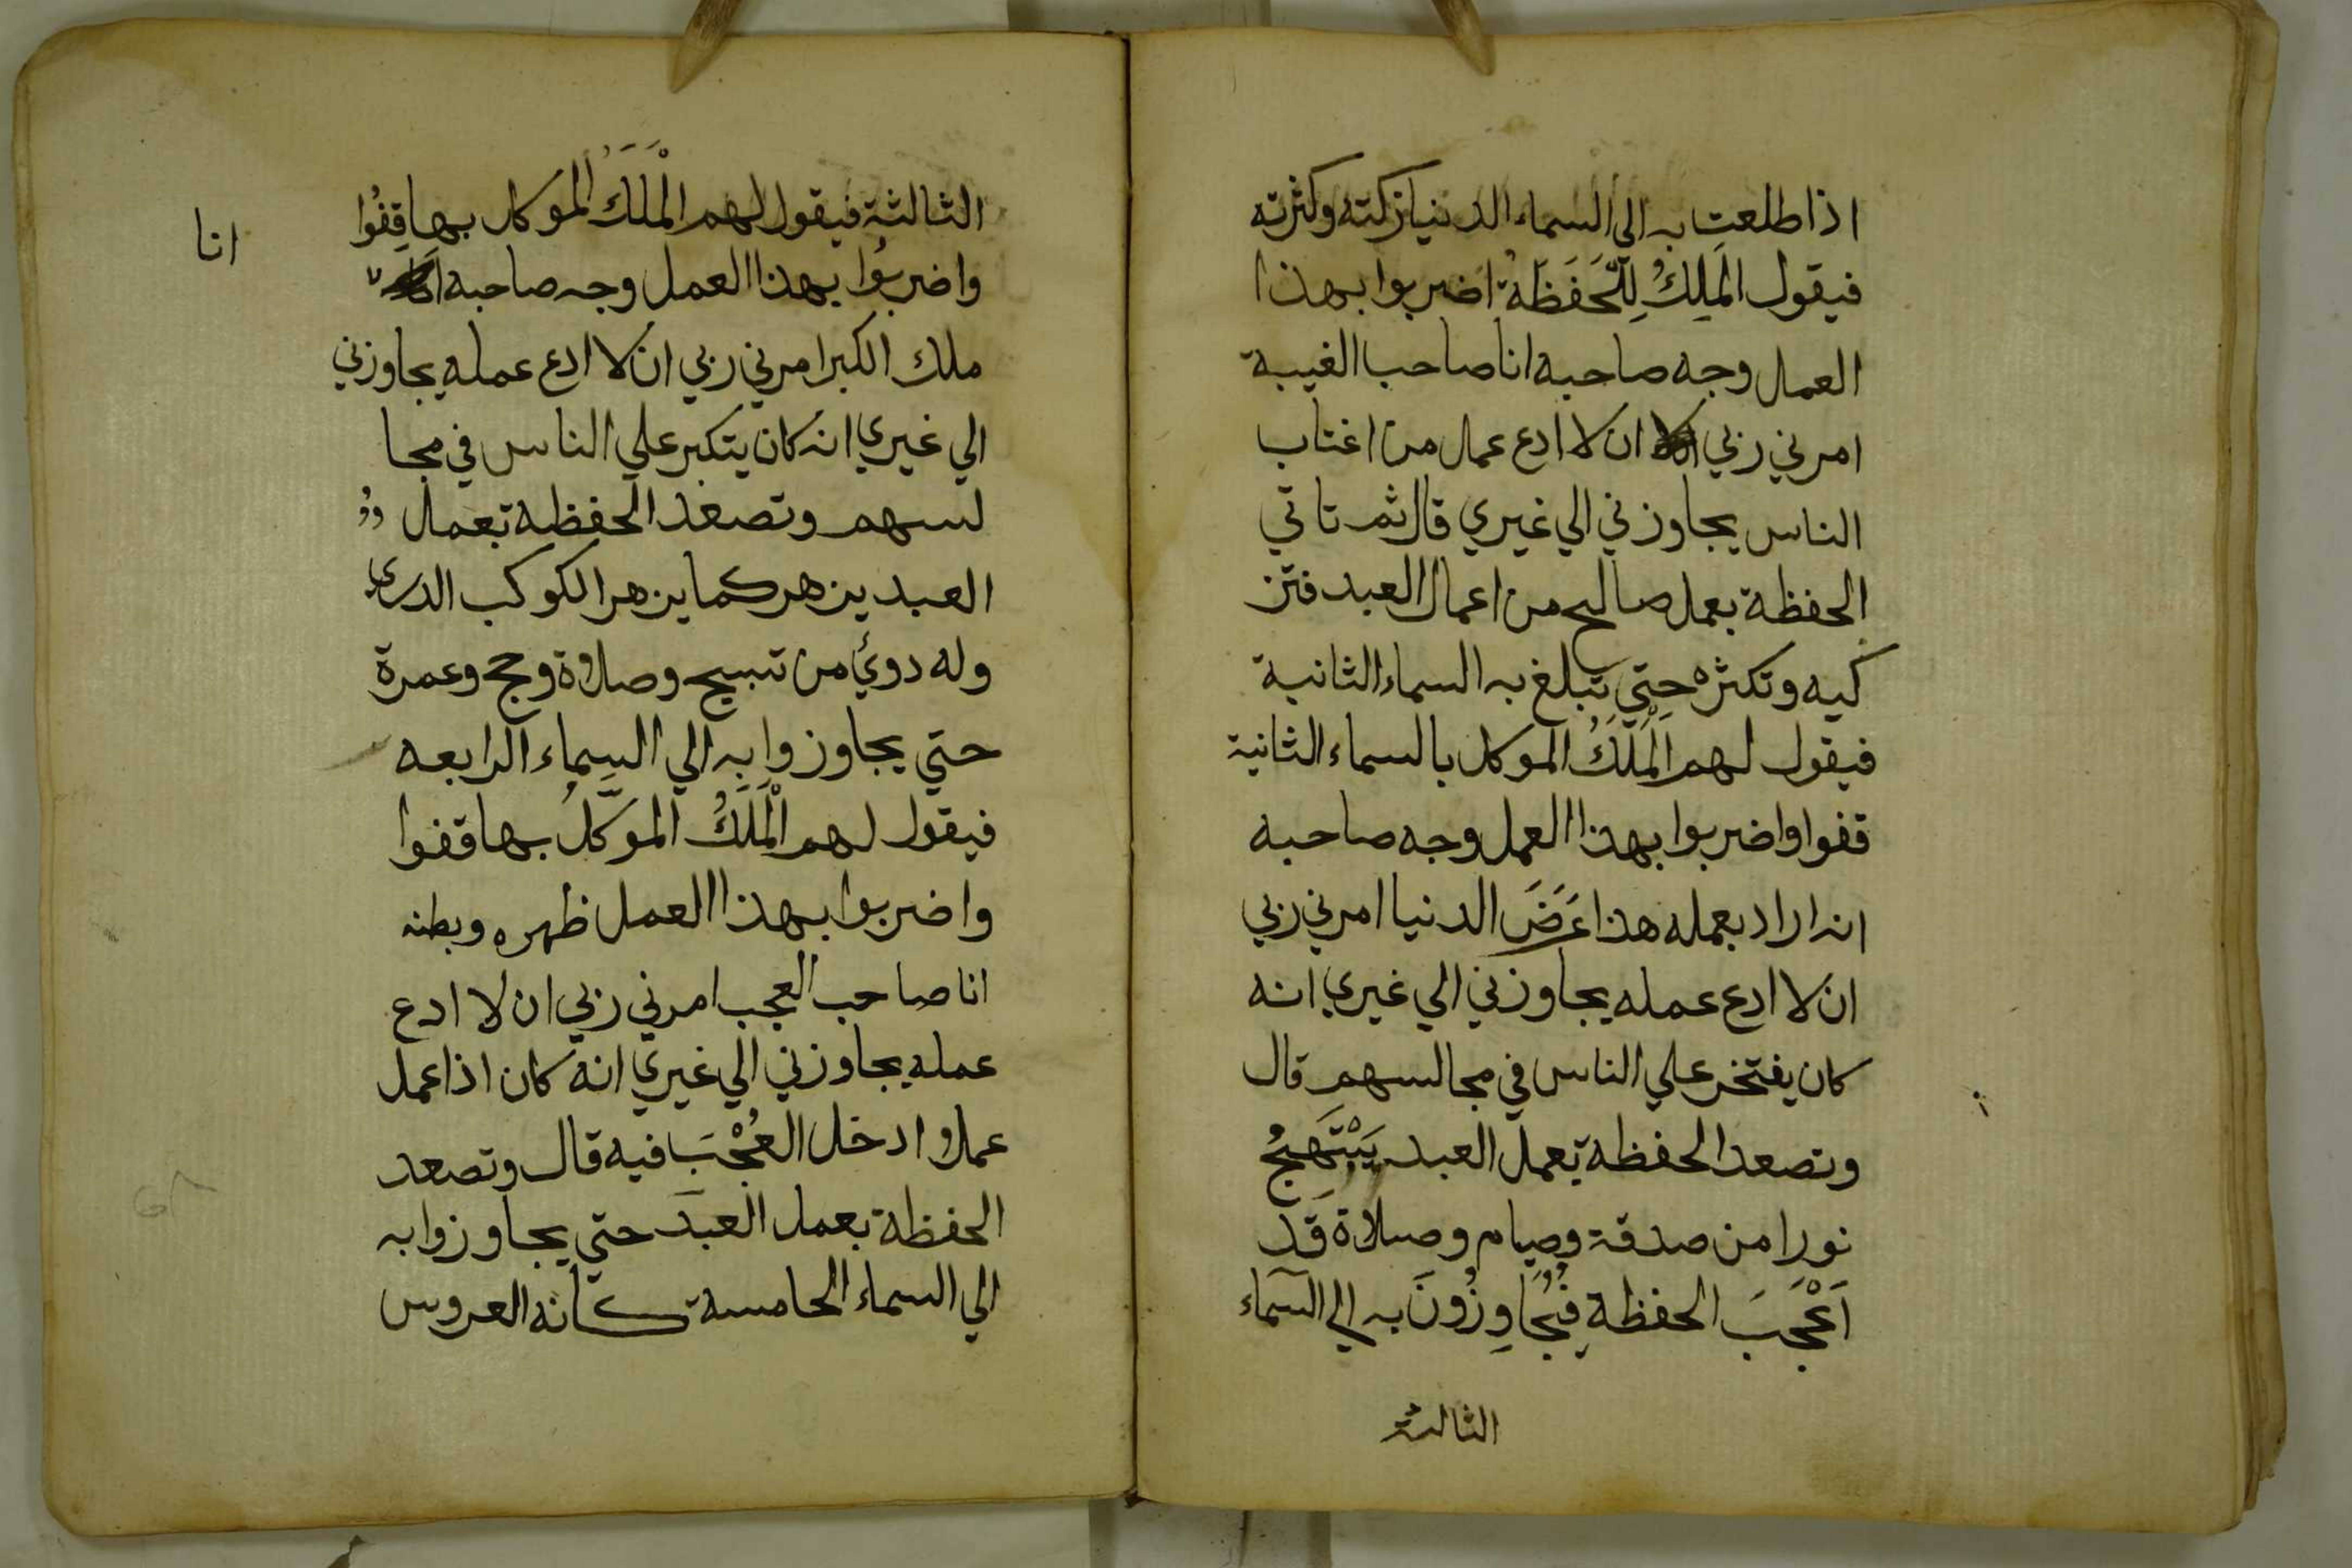 اذا طلعت به الي السماء الدنيا زكته وكثرته
فيقول المَلِكُ لِلْحَفَظَة اضربوا بهذا
العمل وجه صاحبه انا صاحب الغيبة
امرني ربي ان لا ادع عمل من اغتاب
الناس يجاوزني الي غيري قال ثم تاتي
الحفظة بعمل صالح من اعمال العبد فتز
كيه وتكثره حتي تبلغ به السماء الثانية
فيقول لهم المَلَكُ الموكل بالسماء الثانية
قفوا واضربوا بهذا العمل وجه صاحبه
انه اراد بعمله هذا عَرَضَ الدنيا امرني ربي
ان لا ادع عمله يجاوزني الي غيري انه
كان يفتخر علي الناس في مجالسهم قال
وتصعد الحفظة بعمل العبد يَبْتَهِجُ
نورا من صدقة وصيام وصلاة قَد
اَعْجَبَ الحفظة فيُجَاوِزُونَ به الي السمآء
الثالثة
الثالثة فيقول لهم الْمَلَكُ الموكل بها قِفُوا
واضربُوا بهذا العمل وجه صاحبه
انا
ملك الكبر امرني ربي ان لا ادع عمله يجاوزني
الي غيري انه كان يتكبر علي الناس في مجا
لسهم وتصعد الحفظة بعمل
العبد يزهر كما يزهر الكوكب الدري
وله دويٌ من تسبيح وصلاة وحج وعمرة
حتي يجاوزوا به الي السماء الرابعه
فيقول لهم الْمَلَكُ الموَكَّلُ بها قفوا
واضربوا بهذا العمل ظهره وبطنه
انا صاحب العجب امرني ربي ان لا ادع
عمله يجاوزني الي غيري انه كان اذا عمل
عملا ادخل العُجْبَ فيه قال وتصعد
الحفظة بعمل العبد حتي يجاوزوا به
الي السماء الخامسة كانه العروس